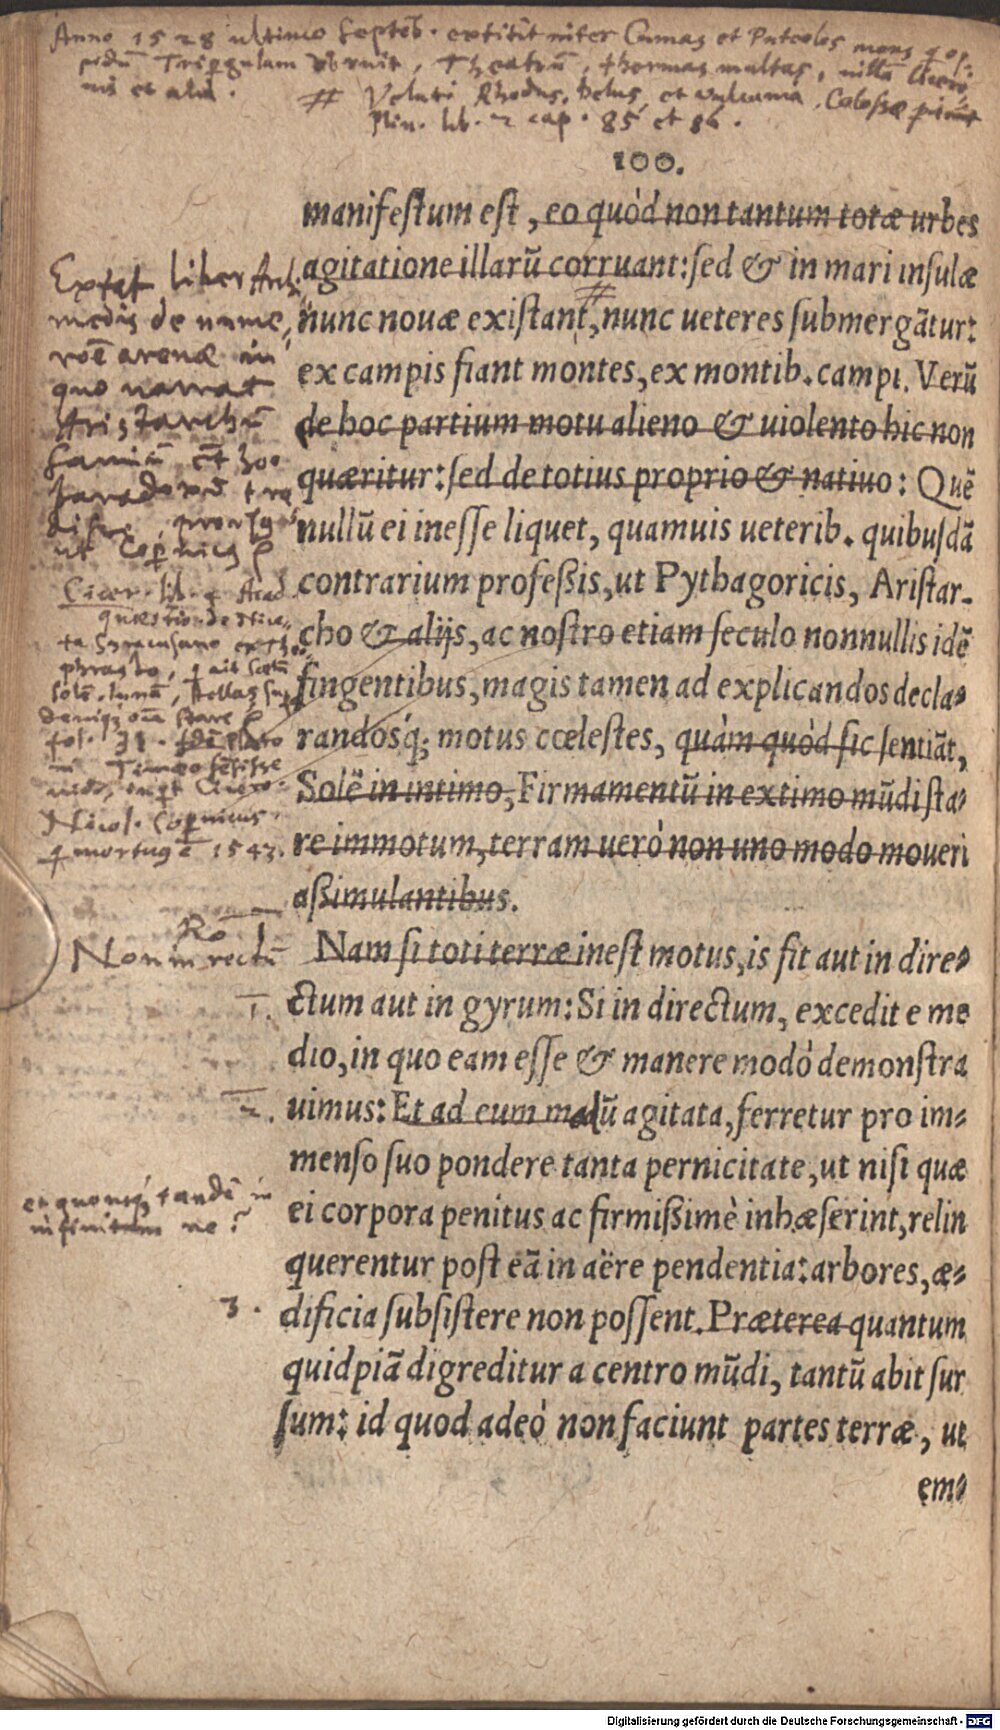 Anno 1528 ultimo Septēb. extitit inter Cumas et Puteolos mons
Tripergulam obruit, thermas multas, uillā
et alia.
# Veluti Rhodus, Delus, et
Plin. lib. 2 cap. 85 et 86.
100.
manifestum est, eo quòd non tantum totæ urbes
agitatione illarū corruant: sed & in mari insulæ
nunc nouæ existant, nunc ueteres submergātur:
ex campis fiant montes, ex montib. campi. Verū
de hoc partium motu alieno & uiolento hic non
quæritur: sed de totius proprio & natiuo: Quē
nullū ei inesse liquet, quamuis ueterib. quibusdā
contrarium profeßis, ut Pythagoricis, Aristar-
cho & alijs, ac nostro etiam seculo nonnullis idē
fingentibus, magis tamen ad explicandos decla-
randósq; motus cœlestes, quàm quòd sic sentiāt,
Solē in intimo, Firmamentū in extimo mūdi sta-
re immotum, terram uerò non uno modo moueri
aßimulantibus.
Nam si toti terræ inest motus, is fit aut in dire-
ctum aut in gyrum: Si in directum, excedit e me
dio, in quo eam esse & manere modò demonstra
uimus: Et ad eum modū agitata, ferretur pro im-
menso suo pondere tanta pernicitate, ut nisi quæ
ei corpora penitus ac firmißimè inhæserint, relin
querentur post eā in aëre pendentia: arbores, æ-
dificia subsistere non possent. Præterea quantum
quidpiā digreditur a centro mūdi, tantū abit sur
sum: id quod adeò non faciunt partes terræ, ut
em-
Extat liber Archi
medis de nume,
ro arenæ in
quo narrat
Aristarchū
Samiū
ut Copernicus
Cicer. lib. 4 Acad
quæstion de Nice,
ta Syracusano ex Theo
phrasto, q ait cœlū
solē, lunā, stellas, su
fol. 31.
Nicol. Copernicus
q mortuus ē 1543.
Ro
Non in rectū
1.
2.
tandē in
infinitum ne?
3.
Digitalisierung gefördert durch die Deutsche Forschungsgemeinschaft - DFG